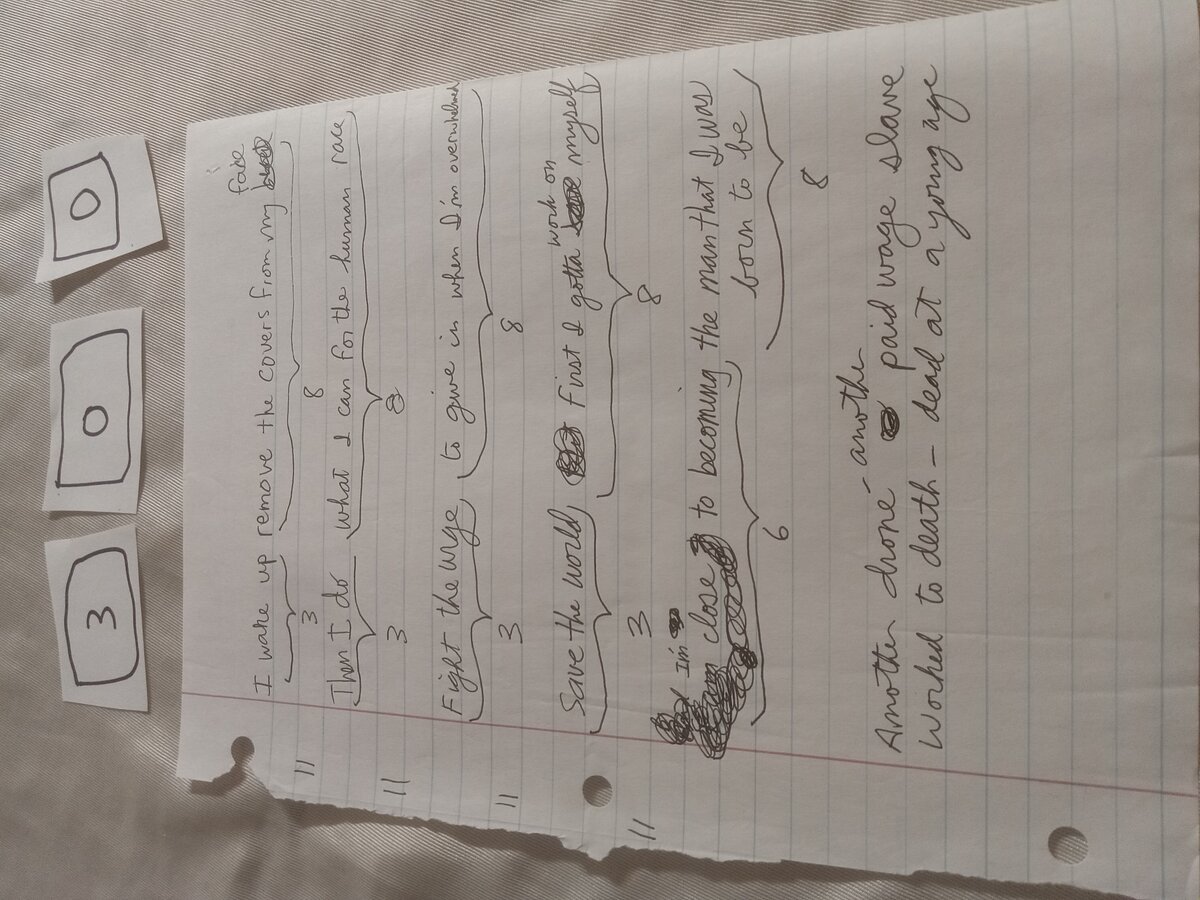 3 0 0
I wake up remove the covers from my face
3 8
11
Then I do what I can for the human race
3 8
11
Fight the urge to give in when I'm overwhelmed
3 8
11
Save the world, First I gotta work on myself
3 8
11
I'm close to becoming the man that I was
born to be
6 8
Another drone - another paid wage slave
Worked to death - dead at a young age